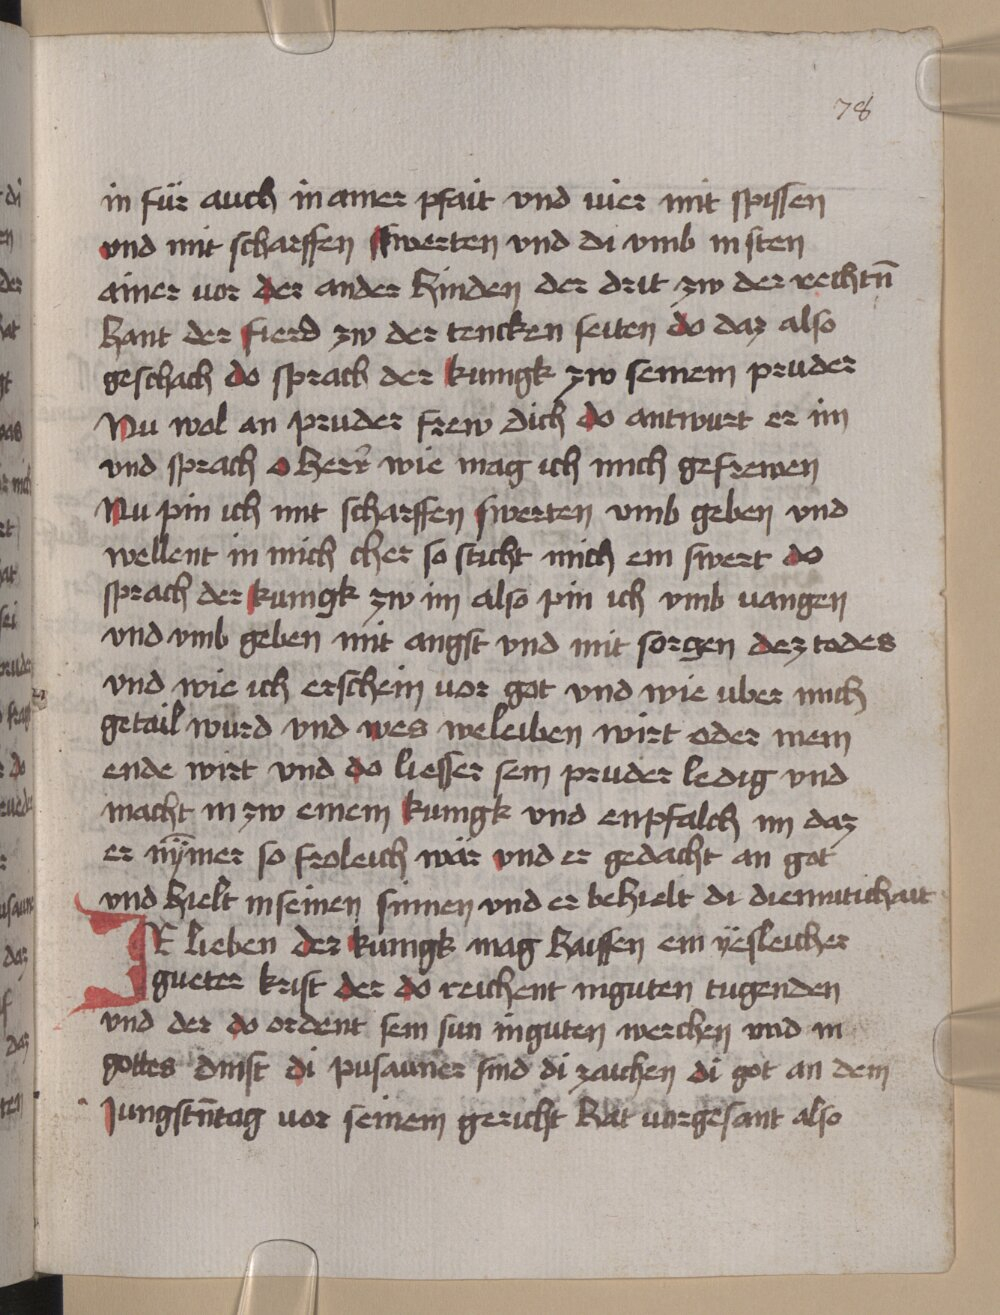 78
in für auch in ainer pfait vnd vier mit spissen
vnd mit scharffen swerten vnd di vmb in sten
ainer vor der ander hinden der drit zw der rechtn̄
hant der fierd zw der tencken seiten do daz also
geschach do sprach der kunigk zw seinem pruder
Nu wol an pruder frew dich do antwurt er im
vnd sprach o herr wie mag ich mich gefrewen
Nu pin ich mit scharffen swerten vmb geben vnd
wellent in mich cher so sticht mich ein swert do
sprach der kunigk zw im also pin ich vmb uangen
vnd vmb geben mit angst vnd mit sorgen dez todes
vnd wie ich erschein vor got vnd wie vber mich
getail wurd vnd wes weleiben wirt oder mein
ende wirt vnd do liesser sein pruder ledig vnd
macht in zw einem kunigk vnd enpfalch im daz
er nÿmer so froleich wär vnd er gedacht an got
vnd hielt in seinen sinnen vnd er behielt di diemutichait
IR lieben der kunigk mag haissen ein ÿesleicher
gueter krist der do reichent in guten tugenden
vnd der do ordent sein sun in guten werchen vnd in
gottes dinst di pusauner sind di zaichen di got an dem
Jungstn̄tag vor seinem gericht hat vorgesant also